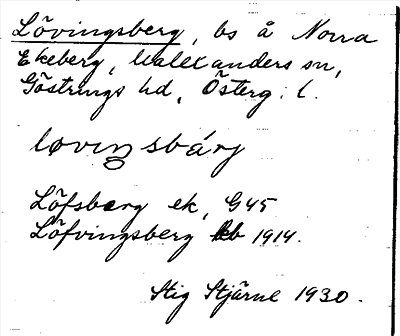 Lövingsberg, bs å Norra
Ekeberg, Kallerstads sn,
Göstrings hd, Österg. l.
løviŋsbárj
Löfsberg ek, G45
Löfvingsberg kb 1914.
Stig Stjärne 1930.